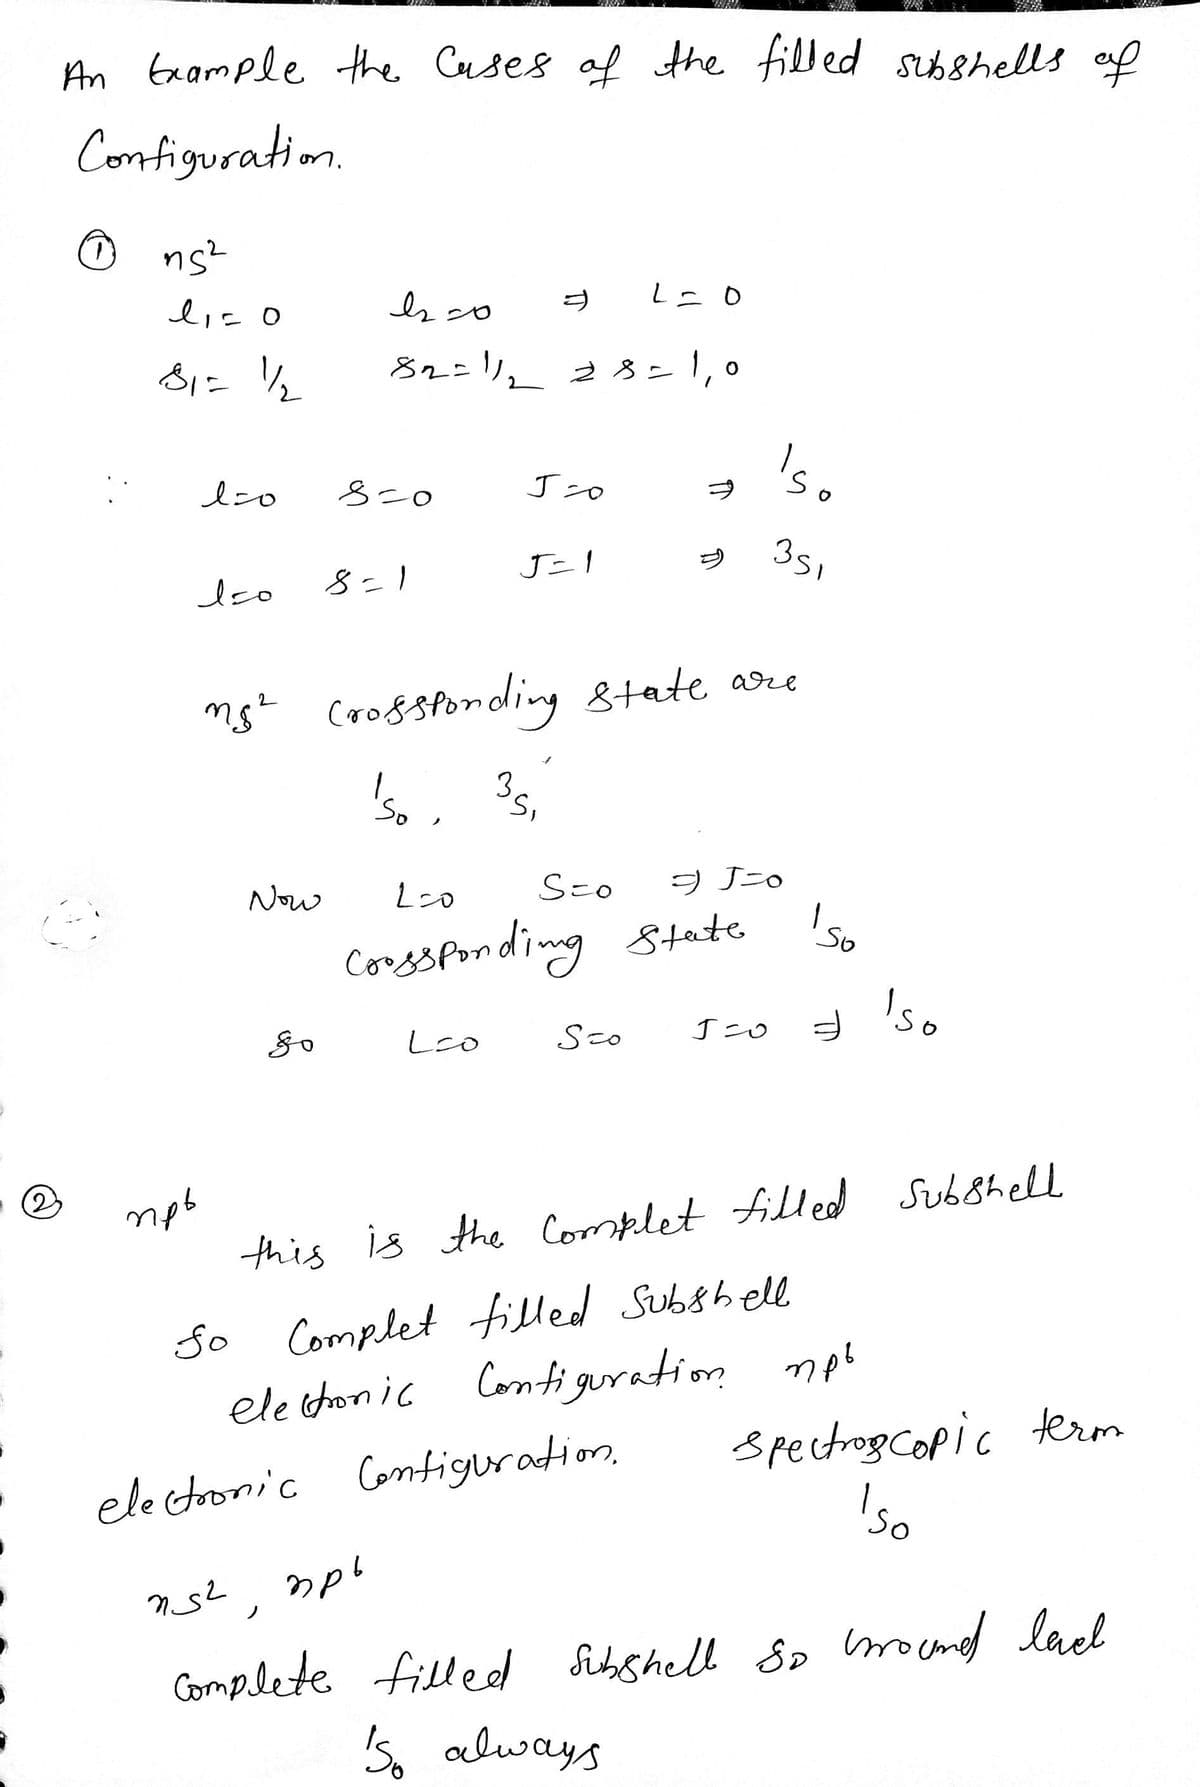 An Example the Cases of the filled subshells of
Configuration.
① ns²
l₁=0 l₂=0 ⇒ L=0
s₁=1/2 s₂=1/2 ⇒ s=1,0
∴ l=0 s=0 J=0 ⇒ ¹S₀
l=0 s=1 J=1 ⇒ ³S₁
ns² Crossponding state are
¹S₀, ³S₁
Now L=0 S=0 ⇒ J=0
Crossponding state ¹S₀
so L=0 S=0 J=0 ⇒ ¹S₀
② np⁶
this is the Complet filled Subshell
So Complet filled Subshell
electronic Configuration np⁶
electronic Configuration. spectroscopic term
¹S₀
ns², np⁶
Complete filled Subshell so Ground level
¹S₀ always